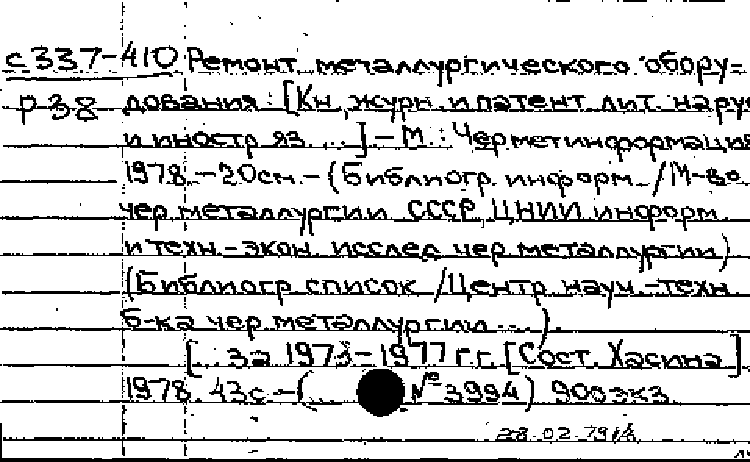 с337-410 Ремонт металлургического обору-
Р38 дования: [Кн, журн. и патент. лит. на рус
и иностр яз ...] - М.: Черметинформация
1978. - 20см. - (Библиогр. информ. / М-во
чер. металлургии СССР, ЦНИИ информ
и техн.-экон. исслед. чер. металлургии)
(Библиогр. список / Центр. науч.-техн
б-ка чер. металлургии ...).
[.. за 1973-1977 г.г. [Сост. Хасина]
1978. 43с. - (... № 3994) 900экз.
28.02.79